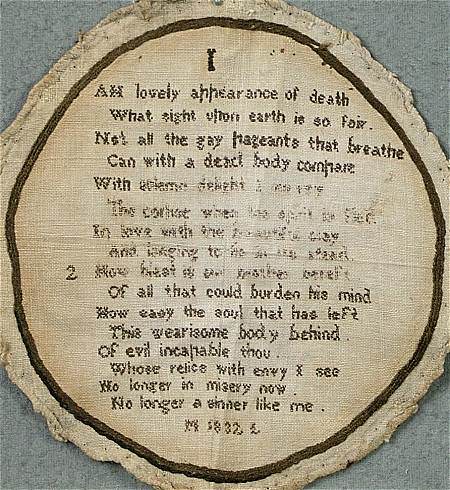 1
AH lovely appearance of death
What sight upon earth is so fair.
Not all the gay pageants that breathe
Can with a dead body compare
With solemn delight I survey
The corpse when the spirit is fled
In love with the beautiful clay
And longing to lie in its stead.
2 How blest is our brother bereft
Of all that could burden his mind
How easy the soul that has left
This wearisome body behind.
Of evil incapable thou.
Whose relics with envy I see
No longer in misery now.
No longer a sinner like me.
M 1832